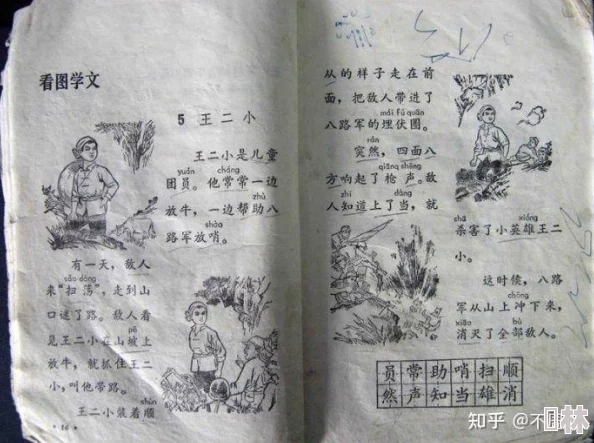 看图学文
5 王二小
王二小是儿童
yuán cháng
团员。他常常一边
zhù
放牛，一边帮助八
shào
路军放哨。
有一天，敌人
sǎo dàng
来“扫荡”，走到山
口迷了路。敌人看
pō
见王二小在山坡上
放牛，就抓住王二
小，叫他带路。
shùn
王二小装着顺
·16·
从的样子走在前
面，把敌人带进了
mái fú quān
八路军的埋伏圈。
rán
突然，四面八
qiāng shēng
方响起了枪声。敌
zhī dàng
人知道上了当，就
shā xióng
杀害了小英雄王二
小。
这时候，八路
chōng
军从山上冲下来，
xiāo bù
消灭了全部敌人。
员常助哨扫顺
然声知当雄消
知乎 @不
林